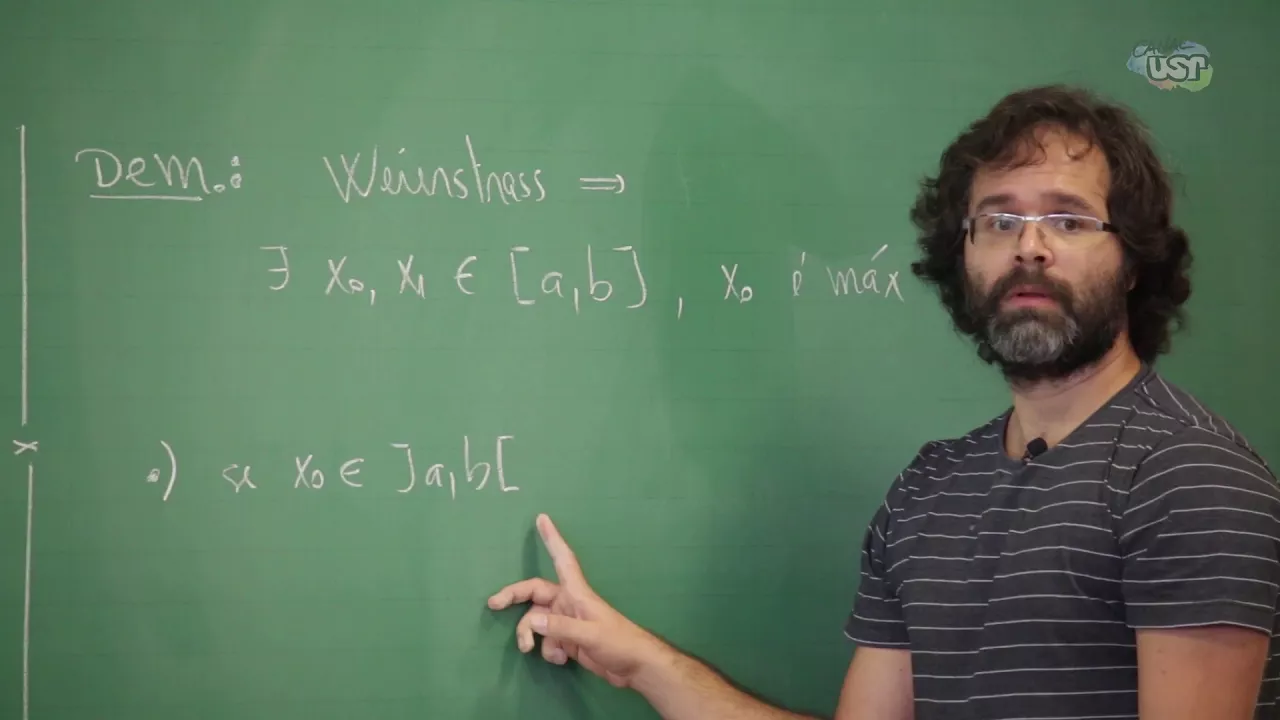 CANAL USP
Dem.: Weiersstrass ⇒
∃ x₀, x₁ ∈ [a,b], x₀ é máx
•) se x₀ ∈ ]a,b[